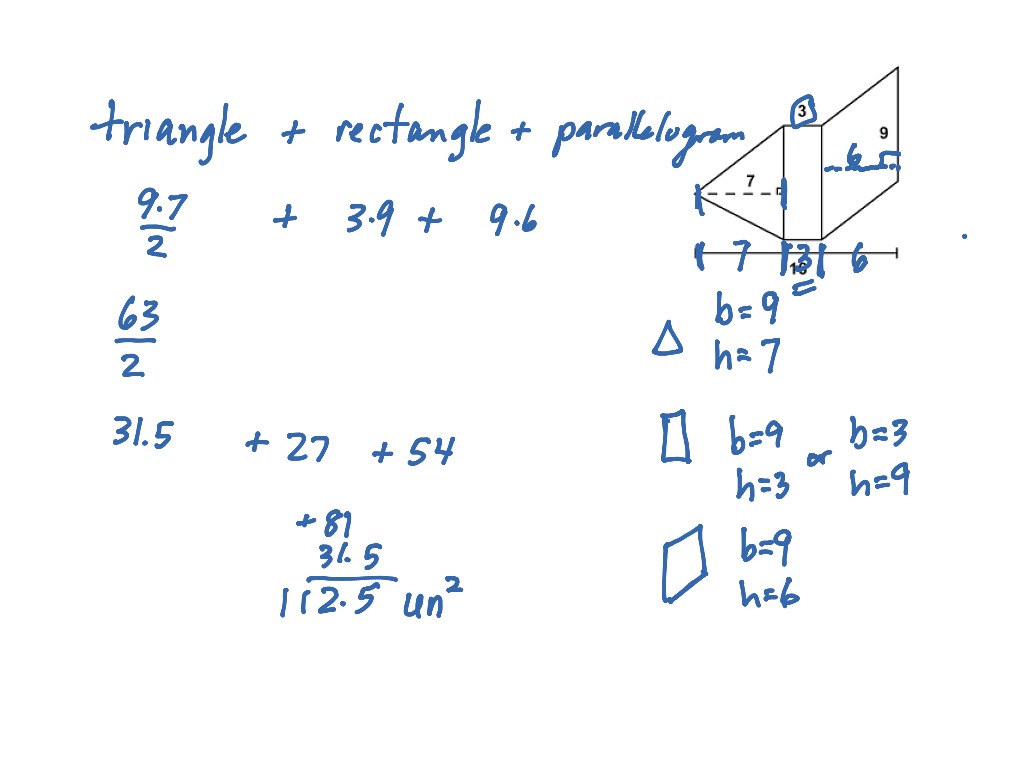 triangle + rectangle + parallelogram
3
9
6
7
9·7/2 + 3·9 + 9·6
7 3 6
16
b=9
h=7
63/2
31.5 + 27 + 54
b=9 or b=3
h=3 h=9
+ 81
31.5
112.5 un²
b=9
h=6